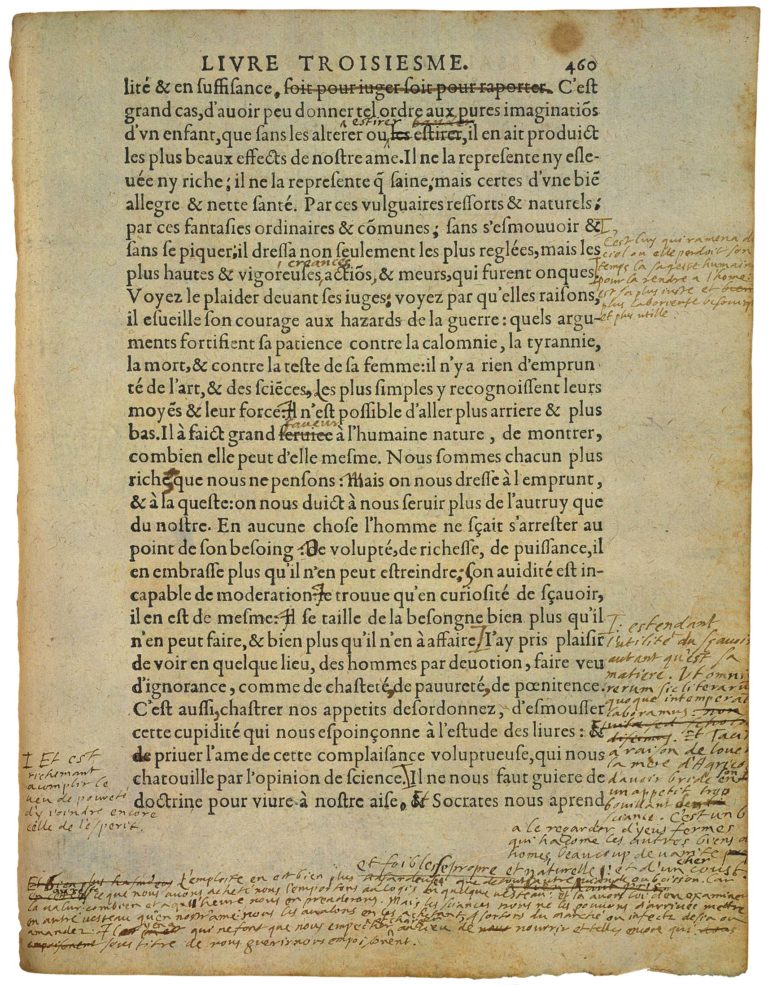 LIVRE TROISIESME. 460
lité & en suffisance, soit pour iuger soit pour raporter. C'est
grand cas, d'auoir peu donner tel ordre aux pures imaginatiõs
estirer
d'vn enfant, que sans les alterer ou les estirer, il en ait produict
les plus beaux effects de nostre ame. Il ne la represente ny esle-
uée ny riche; il ne la represente q̃ saine; mais certes d'vne biẽ
allegre & nette santé. Par ces vulguaires ressorts & naturels;
par ces fantasies ordinaires & cõmunes; sans s'esmouuoir &
sans se piquer; il dressa non seulement les plus reglées, mais les
creances
plus hautes & vigoreuses, actiõs, & meurs, qui furent onques.
Voyez le plaider deuant ses iuges; voyez par qu'elles raisons,
il esueille son courage aux hazards de la guerre: quels argu-
ments fortifient sa patience contre la calomnie, la tyrannie,
la mort, & contre la teste de sa femme: il n'y a rien d'emprun
té de l'art, & des sciẽces, Les plus simples y recognoissent leurs
moyẽs & leur force: Il n'est possible d'aller plus arriere & plus
faueur
bas. Il à faict grand seruice à l'humaine nature, de montrer,
combien elle peut d'elle mesme. Nous sommes chacun plus
riche que nous ne pensons: Mais on nous dresse à l'emprunt,
& à la queste: on nous duict à nous seruir plus de l'autruy que
du nostre. En aucune chose l'homme ne sçait s'arrester au
point de son besoing: De volupté, de richesse, de puissance, il
en embrasse plus qu'il n'en peut estreindre; Son auidité est in-
capable de moderation. Je trouue qu'en curiosité de sçauoir,
il en est de mesme: Il se taille de la besongne bien plus qu'il
n'en peut faire, & bien plus qu'il n'en à affaire. I'ay pris plaisir
de voir en quelque lieu, des hommes par deuotion, faire veu
d'ignorance, comme de chasteté, de pauureté, de pœnitence.
C'est aussi, chastrer nos appetits desordonnez, d'esmousser
cette cupidité qui nous espoinçonne à l'estude des liures: &
de priuer l'ame de cette complaisance voluptueuse, qui nous
chatouille par l'opinion de science. Il ne nous faut guiere de
doctrine pour viure à nostre aise, Et Socrates nous aprend
C'est luy qui ramena du
ciel ou elle perdoit son
temps la sagesse humaine
pour la rendre a l'home:
ou est sa plus iuste et
plus laborieuse besouigne
et plus utille
estendant
l'utilité du sçauoir
autant qu'est sa
matiere. Ut omnium
rerum sic literarum
quoque intemperantia
laboramus.
Et Tacitus
a raison de louer
la mere d'Agricola
d'auoir bride en son
un appetit trop
bouillant de
sciance. C'est un b
a le regarder d'yeus fermes
qui ha come les autres biens
homes beaucoup de vanite
et foiblesse propre et naturelle: et d'un cher coust
Et est
richemant
acomplir le
veu de poureté
d'y ioindre encore
celle de l'esperit.
L'emploite en est bien plus
que nous avons acheté nous l'emportons au logis en quelque vesseau: et la auons loi d'en examiner
la valur combien et a qu'ell'heure nous en prenderons. Mais les sciances nous ne les pouuons d'arriuee mettre
en autre vesseau qu'en nostr'ame: nous les aualons en les achetant, et sortons du marché ou infects desia ou
amandez. Il y en a qui ne font que nous empescher et charger au lieu de nourrir et telles encore qui
sous titre de nous guerir nous empoisonent.